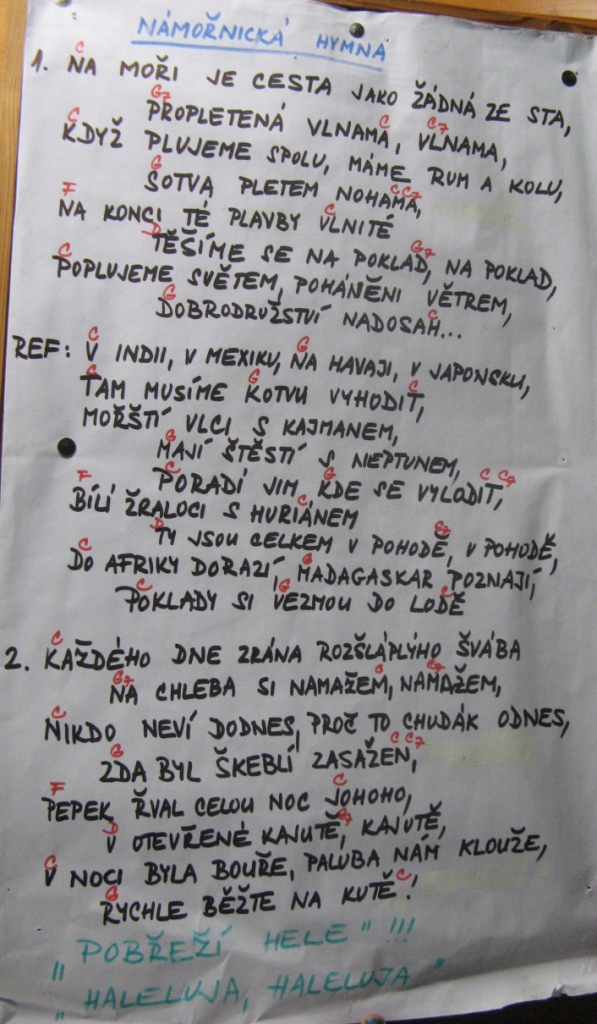 NÁMOŘNICKÁ HYMNA
C
1. NA MOŘI JE CESTA JAKO ŽÁDNÁ ZE STA,
G7 C C7
PROPLETENÁ VLNAMA, VLNAMA,
C
KDYŽ PLUJEME SPOLU, MÁME RUM A KOLU,
G C C7
SOTVA PLETEM NOHAMA,
F C
NA KONCI TÉ PLAVBY VLNITÉ
D G7
TĚŠÍME SE NA POKLAD, NA POKLAD,
C
POPLUJEME SVĚTEM, POHÁNĚNI VĚTREM,
G C
DOBRODRUŽSTVÍ NADOSAH...
C G
REF: V INDII, V MEXIKU, NA HAVAJI, V JAPONSKU,
C G C
TAM MUSÍME KOTVU VYHODIT,
MOŘŠTÍ VLCI S KAJMANEM,
G
MAJÍ ŠTĚSTÍ S NEPTUNEM,
C G C C7
PORADÍ JIM, KDE SE VYLODIT,
F C
BÍLÍ ŽRALOCI S HURIÁNEM
D G7
TY JSOU CELKEM V POHODĚ, V POHODĚ,
C G
DO AFRIKY DORAZÍ, MADAGASKAR POZNAJÍ,
C G C
POKLADY SI VEZMOU DO LODĚ
C
2. KAŽDÉHO DNE ZRÁNA ROZŠLÁPLÝHO ŠVÁBA
G7 C C7
NA CHLEBA SI NAMAŽEM, NAMAŽEM,
C
NIKDO NEVÍ DODNES, PROČ TO CHUDÁK ODNES,
G C C7
ZDA BYL ŠKEBLÍ ZASAŽEN,
F C
PEPEK ŘVAL CELOU NOC JOHOHO,
D G7
V OTEVŘENÉ KAJUTĚ, KAJUTĚ,
C
V NOCI BYLA BOUŘE, PALUBA NÁM KLOUŽE,
G C
RYCHLE BĚŽTE NA KUTĚ!
"POBŘEŽÍ HELE" !!!
"HALELUJA, HALELUJA"